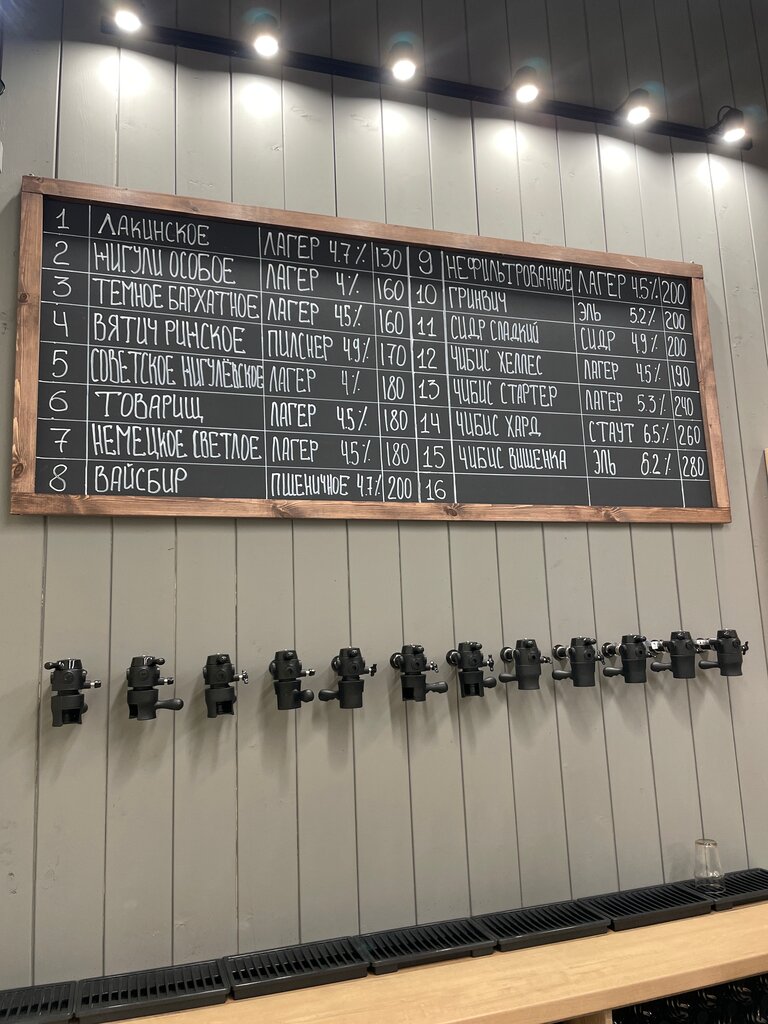 1 ЛАКИНСКОЕ ЛАГЕР 4.7% 130
2 ЖИГУЛИ ОСОБОЕ ЛАГЕР 4% 160
3 ТЕМНОЕ БАРХАТНОЕ ЛАГЕР 4.5% 160
4 ВЯТИЧ РИНСКОЕ ПИЛСНЕР 4.9% 170
5 СОВЕТСКОЕ ЖИГУЛЁВСКОЕ ЛАГЕР 4% 180
6 ТОВАРИЩ ЛАГЕР 4.5% 180
7 НЕМЕЦКОЕ СВЕТЛОЕ ЛАГЕР 4.5% 180
8 ВАЙСБИР ПШЕНИЧНОЕ 4.7% 200
9 НЕФИЛЬТРОВАННОЕ ЛАГЕР 4.5% 200
10 ГРИНВИЧ ЭЛЬ 5.2% 200
11 СИДР СЛАДКИЙ СИДР 4.9% 200
12 ЧИБИС ХЕЛЛЕС ЛАГЕР 4.5% 190
13 ЧИБИС СТАРТЕР ЛАГЕР 5.3% 240
14 ЧИБИС ХАРД СТАУТ 6.5% 260
15 ЧИБИС ВИШЕНКА ЭЛЬ 6.2% 280
16